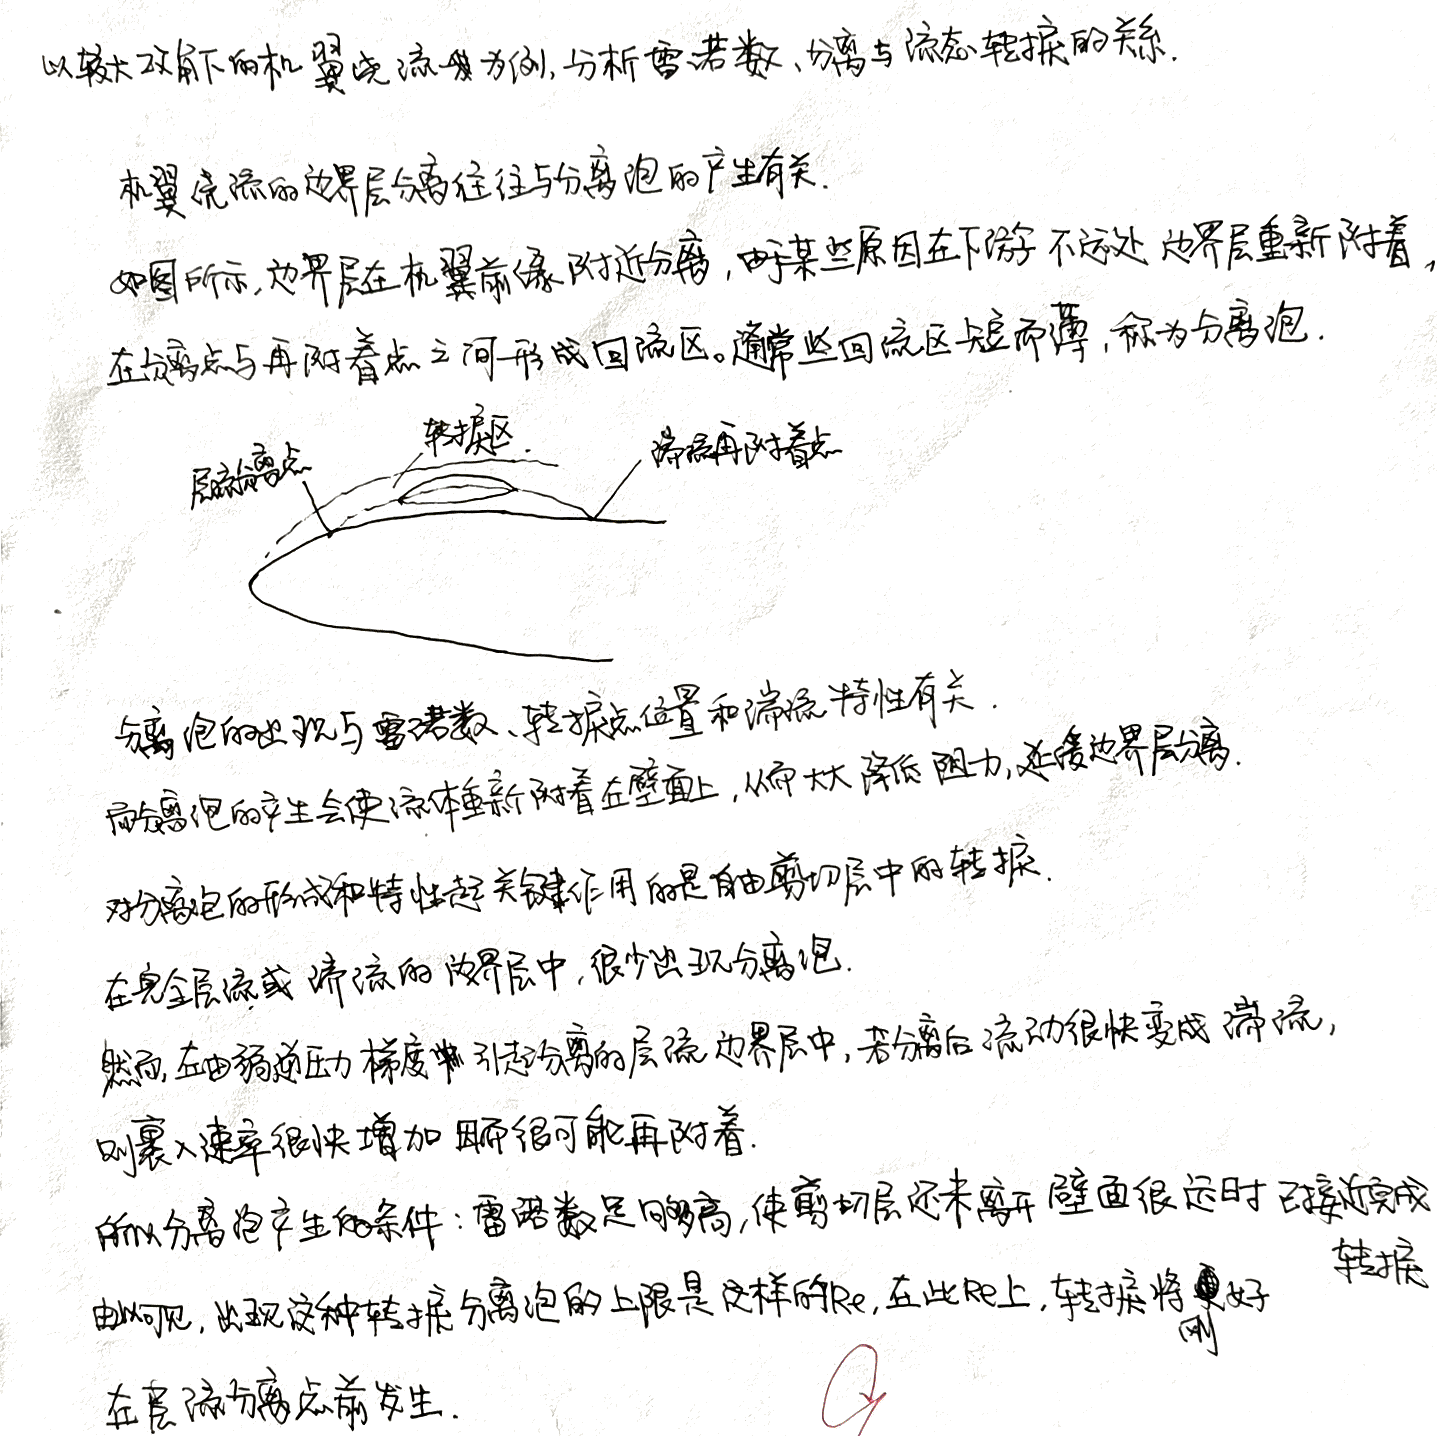 以较大攻角下的机翼绕流为例，分析雷诺数、分离与流态转捩的关系.
机翼绕流的边界层分离往往与分离泡的产生有关.
如图所示，边界层在机翼前缘附近分离，由于某些原因在下游不远处边界层重新附着，
在分离点与再附着点之间形成回流区。通常些回流区短而薄，称为分离泡.
层流分离点
转捩区.
湍流再附着点
分离泡的出现与雷诺数、转捩点位置和湍流特性有关.
而分离泡的产生会使流体重新附着在壁面上，从而大大降低阻力，延缓边界层分离.
对分离泡的形成和特性起关键作用的是自由剪切层中的转捩.
在完全层流或湍流的边界层中，很少出现分离泡.
然而，在由弱逆压力梯度引起分离的层流边界层中，若分离后流动很快变成湍流，
则裹入速率很快增加因而很可能再附着.
所以分离泡产生的条件：雷诺数足够高，使剪切层还未离开壁面很远时已接近完成
转捩
由此可见，出现这种转捩分离泡的上限是这样的Re，在此Re上，转捩将刚好
在层流分离点前发生.